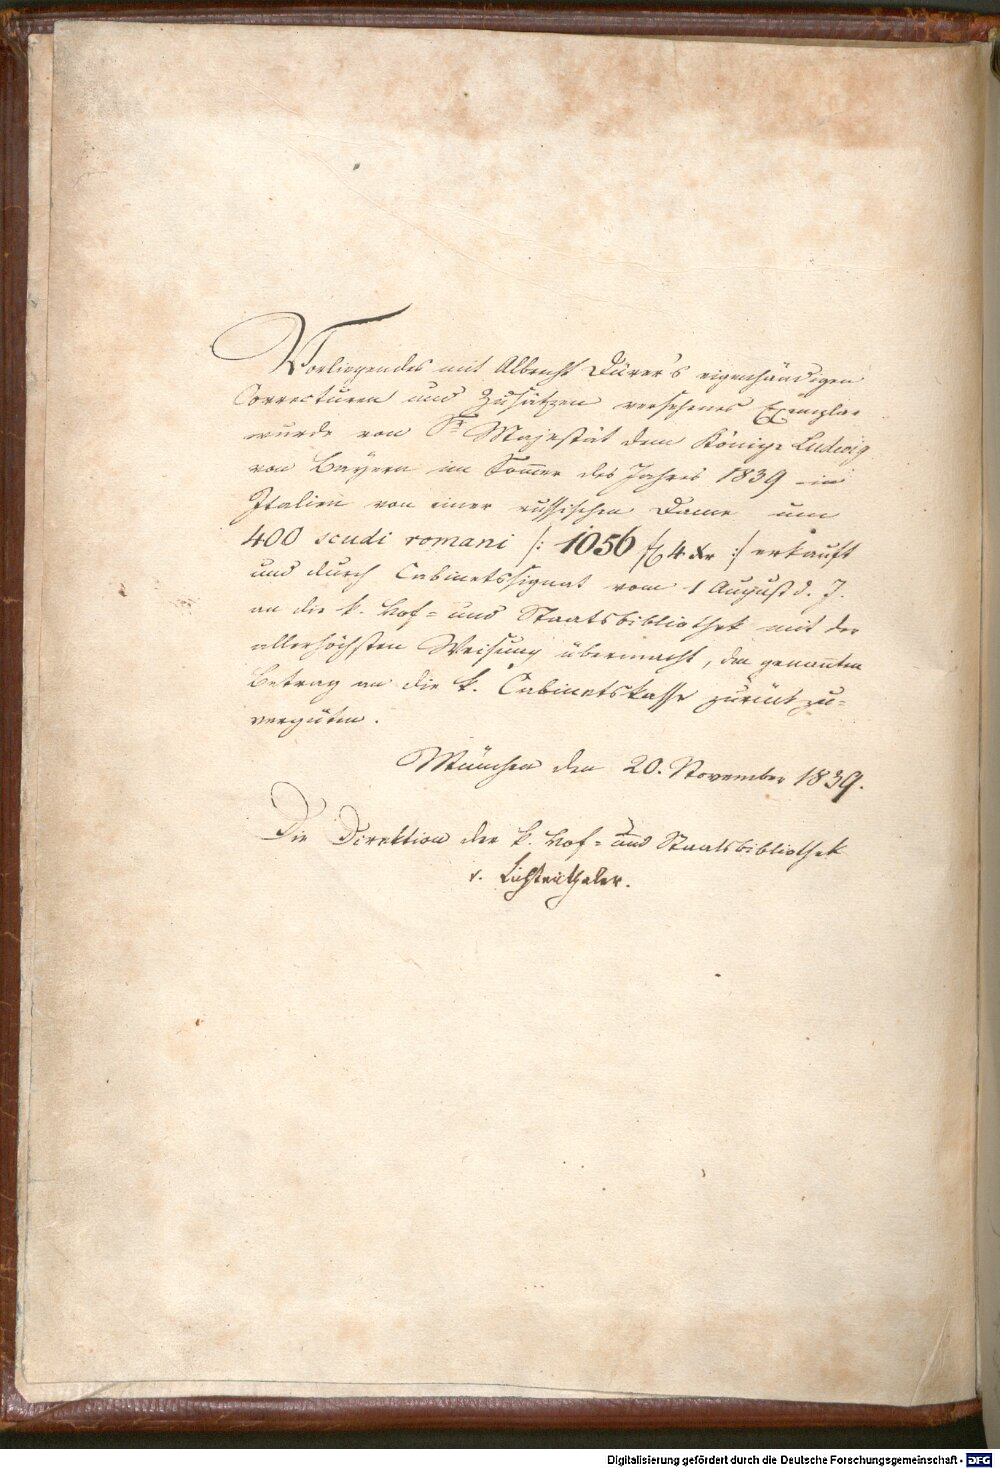 Vorliegendes mit Albrecht Dürer's eigenhändigen
Correcturen und Zusätzen versehenes Exemplar
wurde von Sr Majestät dem Könige Ludwig
von Bayern im Sommer des Jahres 1839 in
Italien von einer russischen Dame um
400 scudi romani /: 1056 fl 4 Xr :/ erkauft
und durch Cabinetssignat vom 1 August d. J.
an die k. Hof- und Staatsbibliothek mit der
allerhöchsten Weisung übermacht, den genannten
Betrag an die k. Cabinetskasse zurückzu-
vergüten.
München den 20. November 1839.
Die Direktion der k. Hof- und Staatsbibliothek
v. Lichtenthaler.
Digitalisierung gefördert durch die Deutsche Forschungsgemeinschaft - DFG